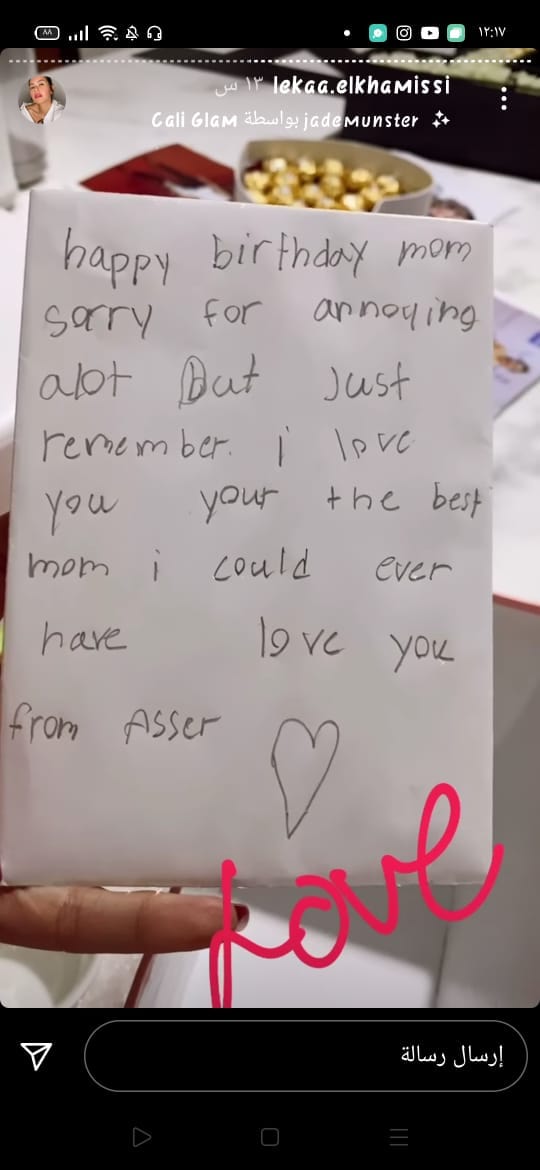 ١٢:١٧
lekaa.elkhamissi ١٣ س
Cali Glam بواسطة jademunster
happy birthday mom
sorry for annoying
alot But Just
remember. i love
you your the best
mom i could ever
have love you
from Asser
Love
إرسال رسالة